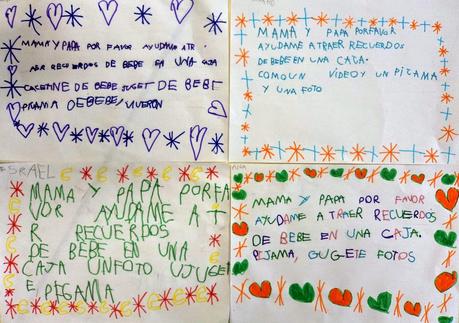 MAMA Y PAPA POR FAVOR AYUDAME A TR.
AER RECUERDOS DE BEBE EN UNA CAJA
CACETINE DE BEBE JUGET DE BEBE
PIGAMA DEBEBE,
MAMA Y PAPA PORFAVOR
AYUDAME A TRAER RECUERDOS
DE BEBE EN UNA CAJA.
COMO UN VIDEO Y UN PIJAMA
Y UNA FOTO
ISRAEL
MAMA Y PAPA PORFA
VOR AYUDAME A T
R RECUERDOS
DE BEBE EN UNA
CAJA UNFOTO UJUGE
E PIGAMA
ANA
MAMA Y PAPA POR FAVOR
AYUDAME A TRAER RECUERDOS
DE BEBE EN UNA CAJA.
PIJAMA, GUGETE FOTOS